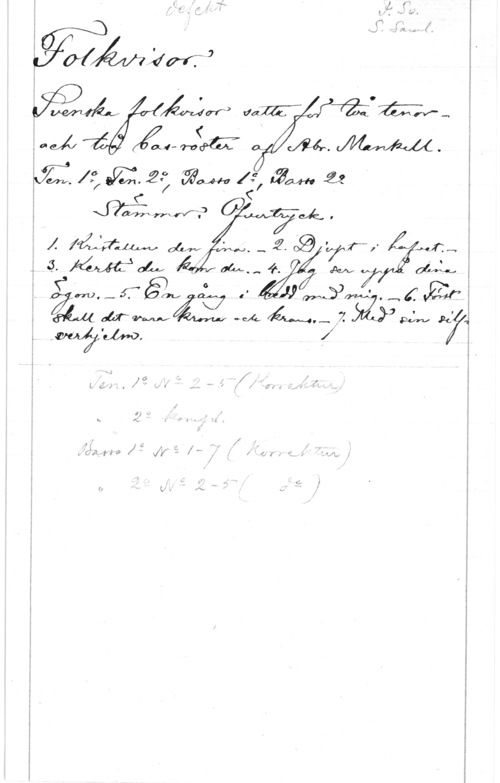 defekt
Fr. Sv.
S. Saml.
Folkvisor.
Svenska folkvisor satta för två tenor-
och två bas-röster af Abr. Mankell.
Ten. 1º, Ten. 2º, Basso 1º, Basso 2º
Stämmor. Öfvertryck.
1. Kristallen den fina. – 2. Djupt i hafvet. –
3. Kerstí du kom du. – 4. Jag ser uppå dina
ögon. – 5. En gång i bredd med mig. – 6. Först
skall det vara krona och krans. – 7. Med sin silf-
verhjelm.
Ten. 1º Nº 2-5 (Korrektur)
" 2º kompl.
Basso 1º Nº 1-7 (Korrektur)
" 2º Nº 2-5 ( dº )